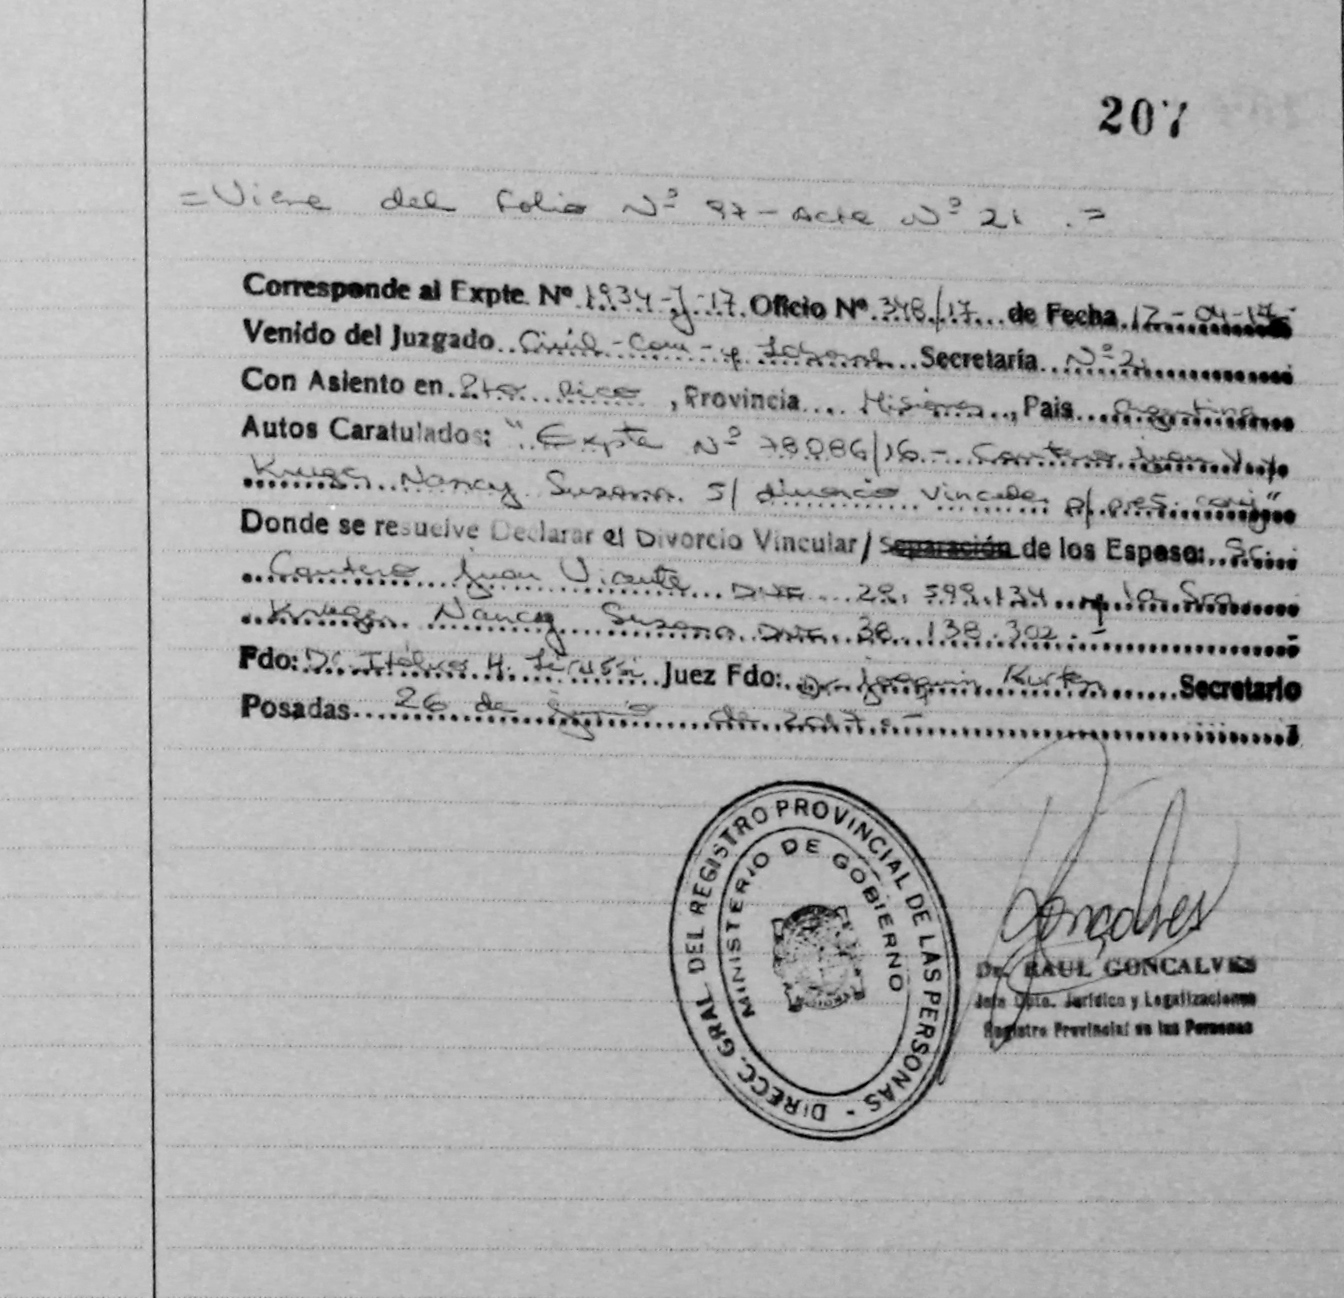 207
=Viene del Folio Nº 97- Acta Nº 21 .=
Corresponde al Expte. Nº 1934-J-17. Oficio Nº 348/17... de Fecha 12-04-17
Venido del Juzgado Civil-Com-y Laboral Secretaría Nº 2
Con Asiento en Pto. Rico, Provincia Misiones, Pais Argentina
Autos Caratulados: "Expte Nº 78086/16.- Cantero Juan V. y
Kruger Nancy Susana s/ divorcio vincular p/ pres. conj"
Donde se resuelve Declarar el Divorcio Vincular/Separación de los Esposo: Sr.
Cantero Juan Vicente DNI 29.599.134 y la Sra
Kruger Nancy Susana DNI 38.138.302.-
Fdo: Dr. H. Juez Fdo: Dr. Joaquin Kurten Secretario
Posadas 26 de de 2017.-
DIRECC. GRAL. DEL REGISTRO PROVINCIAL DE LAS PERSONAS -
MINISTERIO DE GOBIERNO
Gonçalves
Dr. RAUL GONCALVES
Jefe Dpto. Jurídico y Legalizaciones
Registro Provincial de las Personas